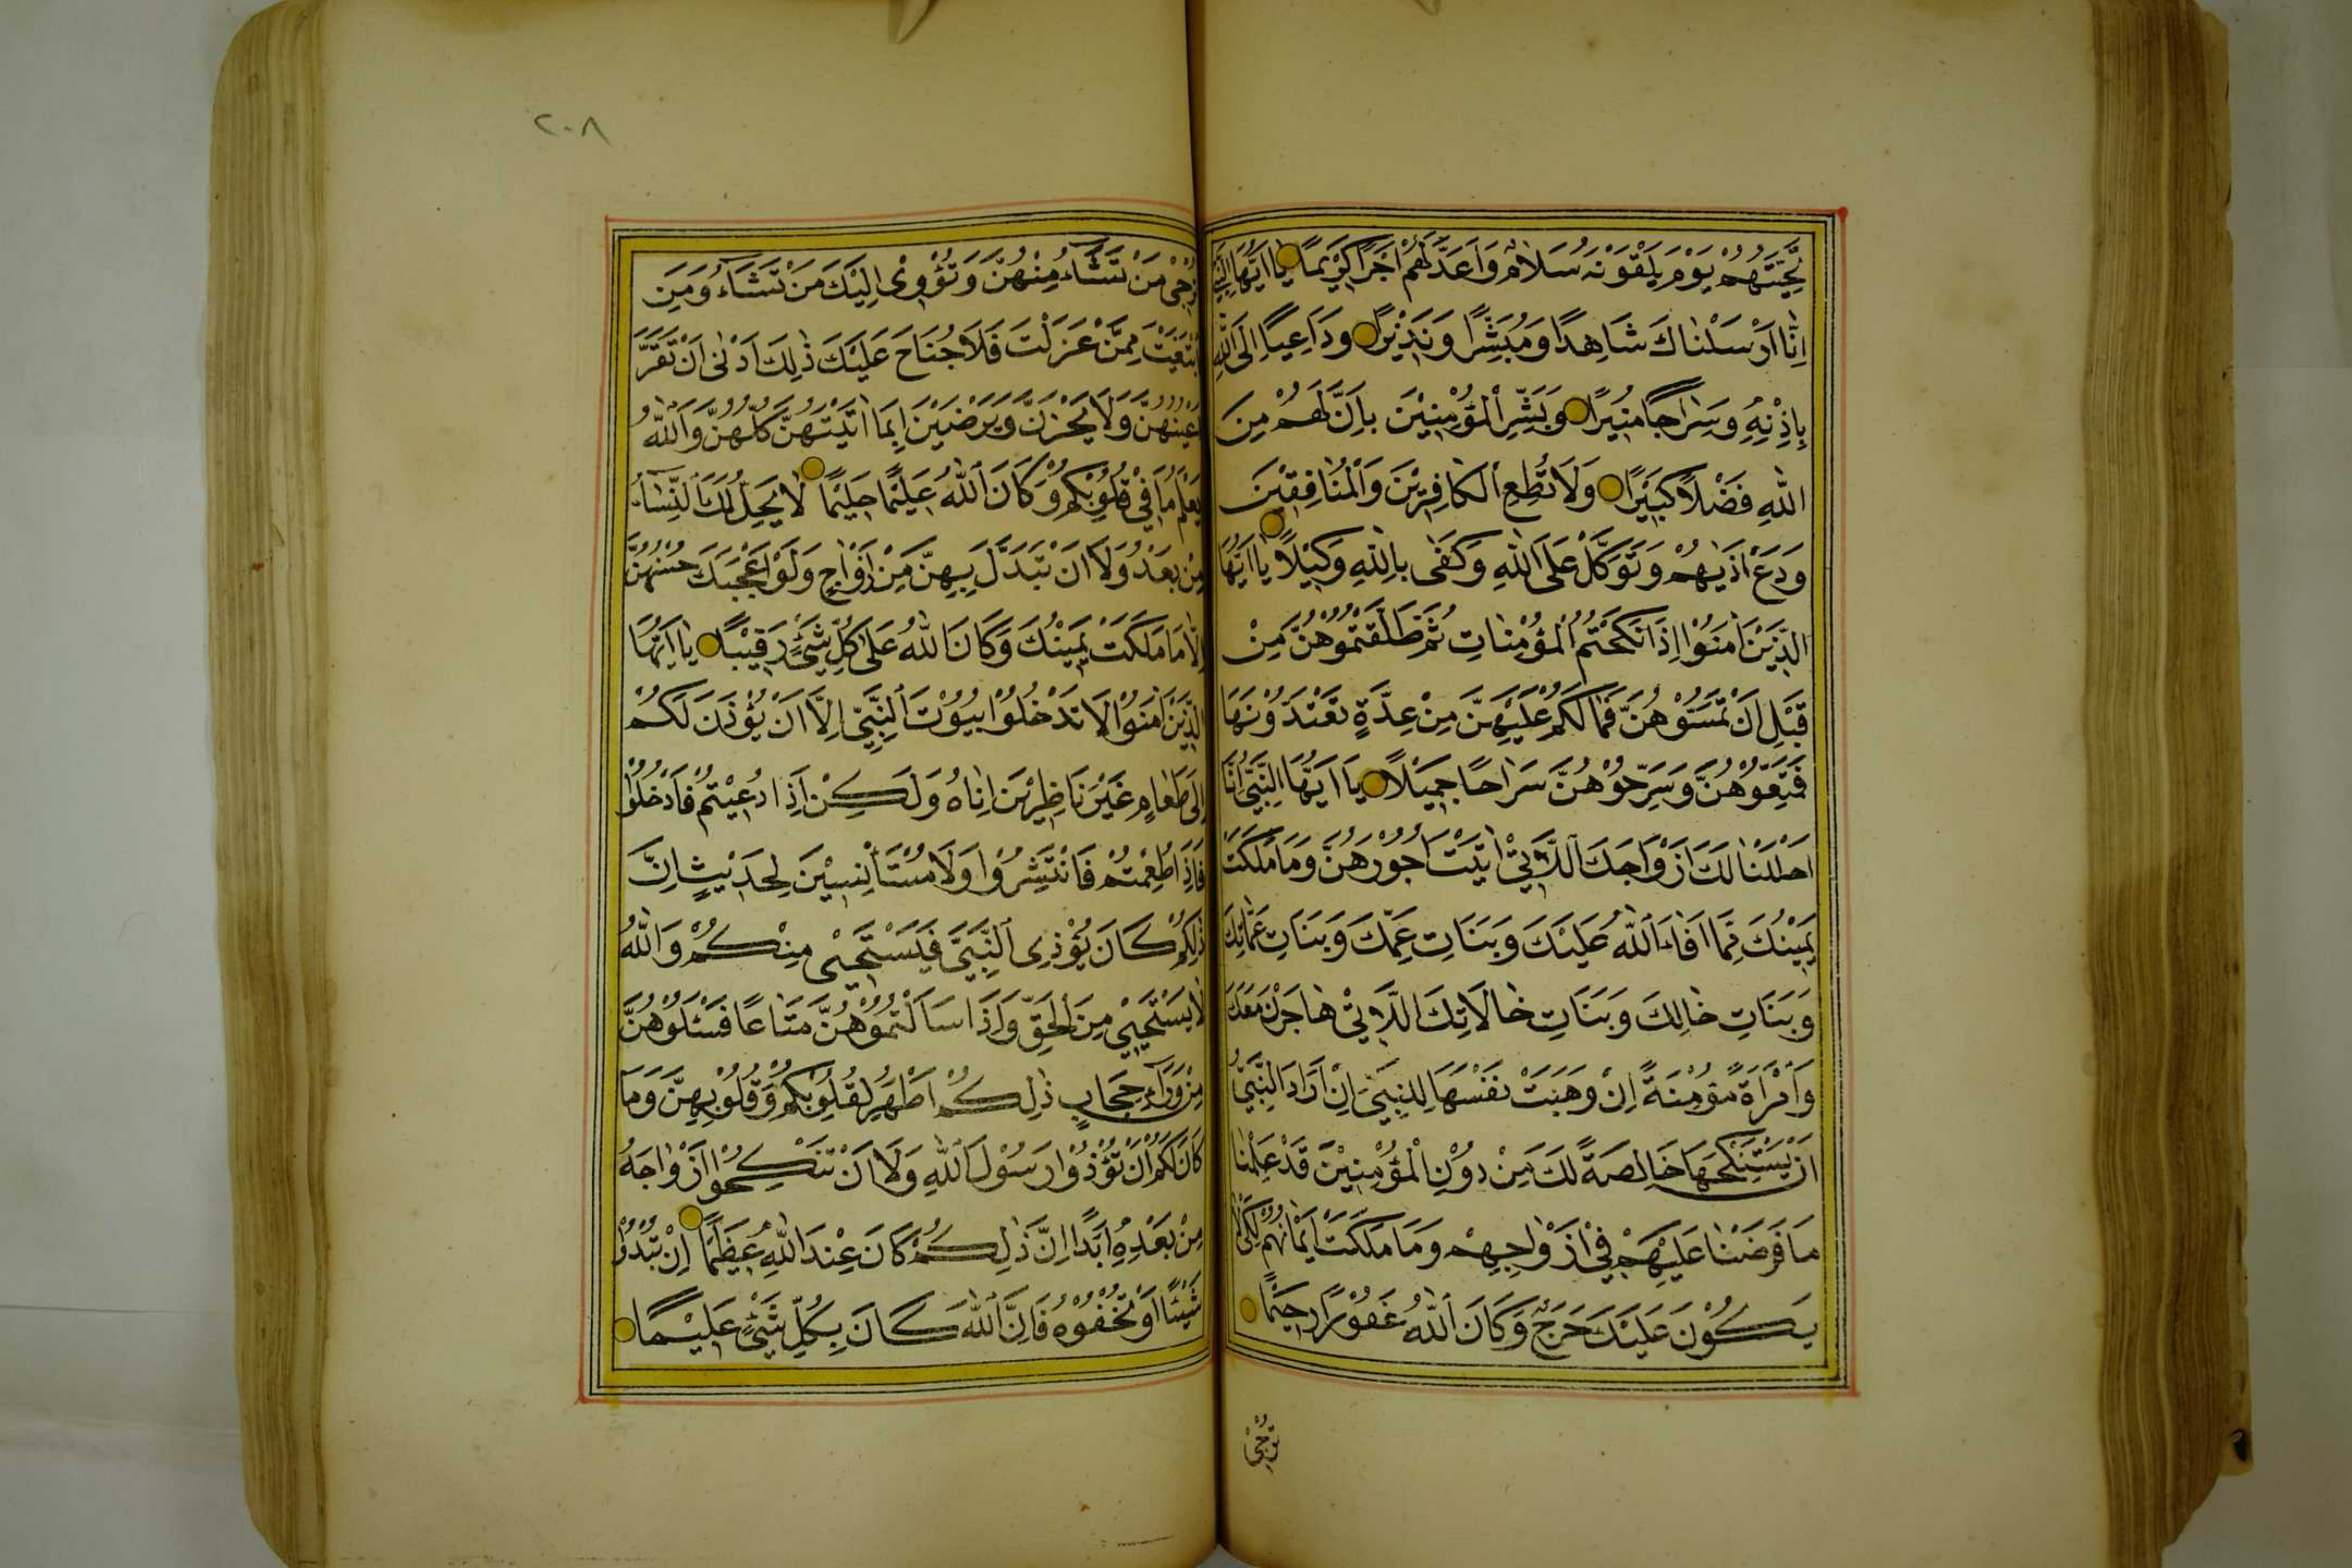 تَحِيَّتُهُمْ يَوْمَ يَلْقَوْنَهُ سَلَامٌ وَاَعَدَّ لَهُمْ اَجْرًا كَرِيْمًا يَا اَيُّهَا النَّبِيُّ
اِنَّا اَرْسَلْنَاكَ شَاهِدًا وَمُبَشِّرًا وَنَذِيْرًا وَدَاعِيًا اِلَى اللّٰهِ
بِاِذْنِهِ وَسِرَاجًا مُنِيْرًا وَبَشِّرِ الْمُؤْمِنِيْنَ بِاَنَّ لَهُمْ مِنَ
اللّٰهِ فَضْلًا كَبِيْرًا وَلَا تُطِعِ الْكَافِرِيْنَ وَالْمُنَافِقِيْنَ
وَدَعْ اَذٰيهُمْ وَتَوَكَّلْ عَلَى اللّٰهِ وَكَفٰى بِاللّٰهِ وَكِيْلًا يَا اَيُّهَا
الَّذِيْنَ اٰمَنُوْا اِذَا نَكَحْتُمُ الْمُؤْمِنَاتِ ثُمَّ طَلَّقْتُمُوْهُنَّ مِنْ
قَبْلِ اَنْ تَمَسُّوْهُنَّ فَمَا لَكُمْ عَلَيْهِنَّ مِنْ عِدَّةٍ تَعْتَدُّوْنَهَا
فَمَتِّعُوْهُنَّ وَسَرِّحُوْهُنَّ سَرَاحًا جَمِيْلًا يَا اَيُّهَا النَّبِيُّ اِنَّا
اَحْلَلْنَا لَكَ اَزْوَاجَكَ اللَّاتِيْ اٰتَيْتَ اُجُوْرَهُنَّ وَمَا مَلَكَتْ
يَمِيْنُكَ مِمَّا اَفَاءَ اللّٰهُ عَلَيْكَ وَبَنَاتِ عَمِّكَ وَبَنَاتِ عَمَّاتِكَ
وَبَنَاتِ خَالِكَ وَبَنَاتِ خَالَاتِكَ اللَّاتِيْ هَاجَرْنَ مَعَكَ
وَامْرَاَةً مُؤْمِنَةً اِنْ وَهَبَتْ نَفْسَهَا لِلنَّبِيِّ اِنْ اَرَادَ النَّبِيُّ
اَنْ يَسْتَنْكِحَهَا خَالِصَةً لَكَ مِنْ دُوْنِ الْمُؤْمِنِيْنَ قَدْ عَلِمْنَا
مَا فَرَضْنَا عَلَيْهِمْ فِيْ اَزْوَاجِهِمْ وَمَا مَلَكَتْ اَيْمَانُهُمْ لِكَيْلَا
يَكُوْنَ عَلَيْكَ حَرَجٌ وَكَانَ اللّٰهُ غَفُوْرًا رَحِيْمًا
تُرْجِيْ
٢٠٨
تُرْجِيْ مَنْ تَشَاءُ مِنْهُنَّ وَتُؤْوِيْ اِلَيْكَ مَنْ تَشَاءُ وَمَنِ
ابْتَغَيْتَ مِمَّنْ عَزَلْتَ فَلَا جُنَاحَ عَلَيْكَ ذٰلِكَ اَدْنٰى اَنْ تَقَرَّ
اَعْيُنُهُنَّ وَلَا يَحْزَنَّ وَيَرْضَيْنَ بِمَا اٰتَيْتَهُنَّ كُلُّهُنَّ وَاللّٰهُ
يَعْلَمُ مَا فِيْ قُلُوْبِكُمْ وَكَانَ اللّٰهُ عَلِيْمًا حَلِيْمًا لَا يَحِلُّ لَكَ النِّسَاءُ
مِنْ بَعْدُ وَلَا اَنْ تَبَدَّلَ بِهِنَّ مِنْ اَزْوَاجٍ وَلَوْ اَعْجَبَكَ حُسْنُهُنَّ
اِلَّا مَا مَلَكَتْ يَمِيْنُكَ وَكَانَ اللّٰهُ عَلٰى كُلِّ شَيْءٍ رَقِيْبًا يَا اَيُّهَا
الَّذِيْنَ اٰمَنُوْا لَا تَدْخُلُوْا بُيُوْتَ النَّبِيِّ اِلَّا اَنْ يُؤْذَنَ لَكُمْ
اِلٰى طَعَامٍ غَيْرَ نَاظِرِيْنَ اِنَاهُ وَلَكِنْ اِذَا دُعِيْتُمْ فَادْخُلُوْا
فَاِذَا طَعِمْتُمْ فَانْتَشِرُوْا وَلَا مُسْتَأْنِسِيْنَ لِحَدِيْثٍ اِنَّ
ذٰلِكُمْ كَانَ يُؤْذِي النَّبِيَّ فَيَسْتَحْيِيْ مِنْكُمْ وَاللّٰهُ
لَا يَسْتَحْيِيْ مِنَ الْحَقِّ وَاِذَا سَاَلْتُمُوْهُنَّ مَتَاعًا فَسْئَلُوْهُنَّ
مِنْ وَرَاءِ حِجَابٍ ذٰلِكُمْ اَطْهَرُ لِقُلُوْبِكُمْ وَقُلُوْبِهِنَّ وَمَا
كَانَ لَكُمْ اَنْ تُؤْذُوْا رَسُوْلَ اللّٰهِ وَلَا اَنْ تَنْكِحُوْا اَزْوَاجَهُ
مِنْ بَعْدِهِ اَبَدًا اِنَّ ذٰلِكُمْ كَانَ عِنْدَ اللّٰهِ عَظِيْمًا اِنْ تُبْدُوْا
شَيْئًا اَوْ تُخْفُوْهُ فَاِنَّ اللّٰهَ كَانَ بِكُلِّ شَيْءٍ عَلِيْمًا